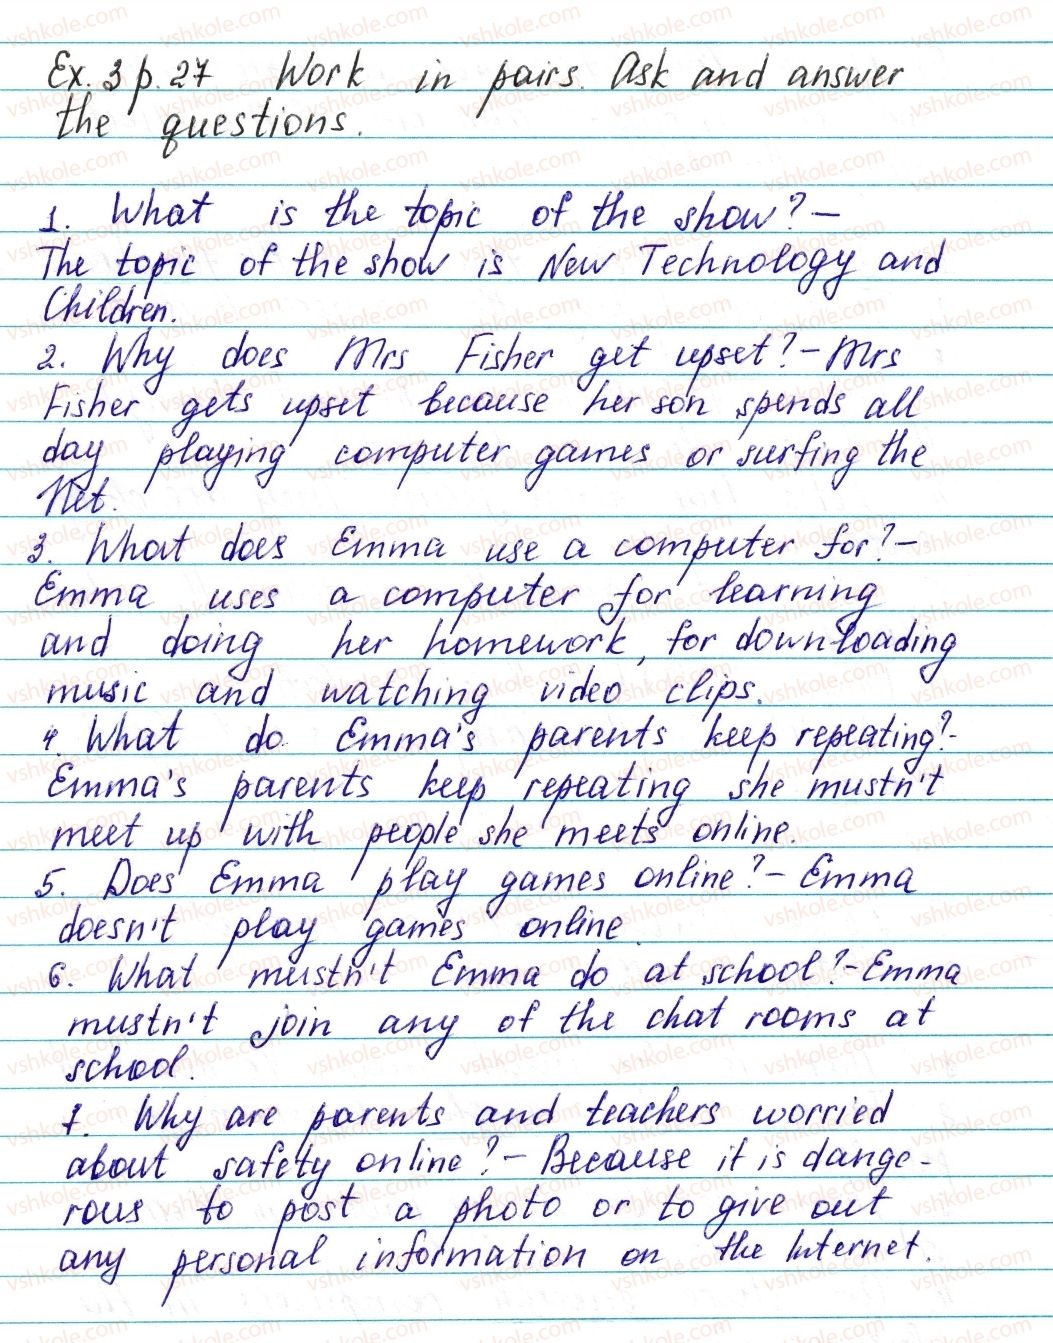 Ex. 3 p. 27 Work in pairs. Ask and answer
the questions.
1. What is the topic of the show? –
The topic of the show is New Technology and
Children.
2. Why does Mrs Fisher get upset? – Mrs
Fisher gets upset because her son spends all
day playing computer games or surfing the
Net.
3. What does Emma use a computer for? –
Emma uses a computer for learning
and doing her homework, for downloading
music and watching video clips.
4. What do Emma's parents keep repeating? –
Emma's parents keep repeating she mustn't
meet up with people she meets online.
5. Does Emma play games online? – Emma
doesn't play games online.
6. What mustn't Emma do at school? – Emma
mustn't join any of the chat rooms at
school.
7. Why are parents and teachers worried
about safety online? – Because it is dange-
rous to post a photo or to give out
any personal information on the Internet.
vshkole.com